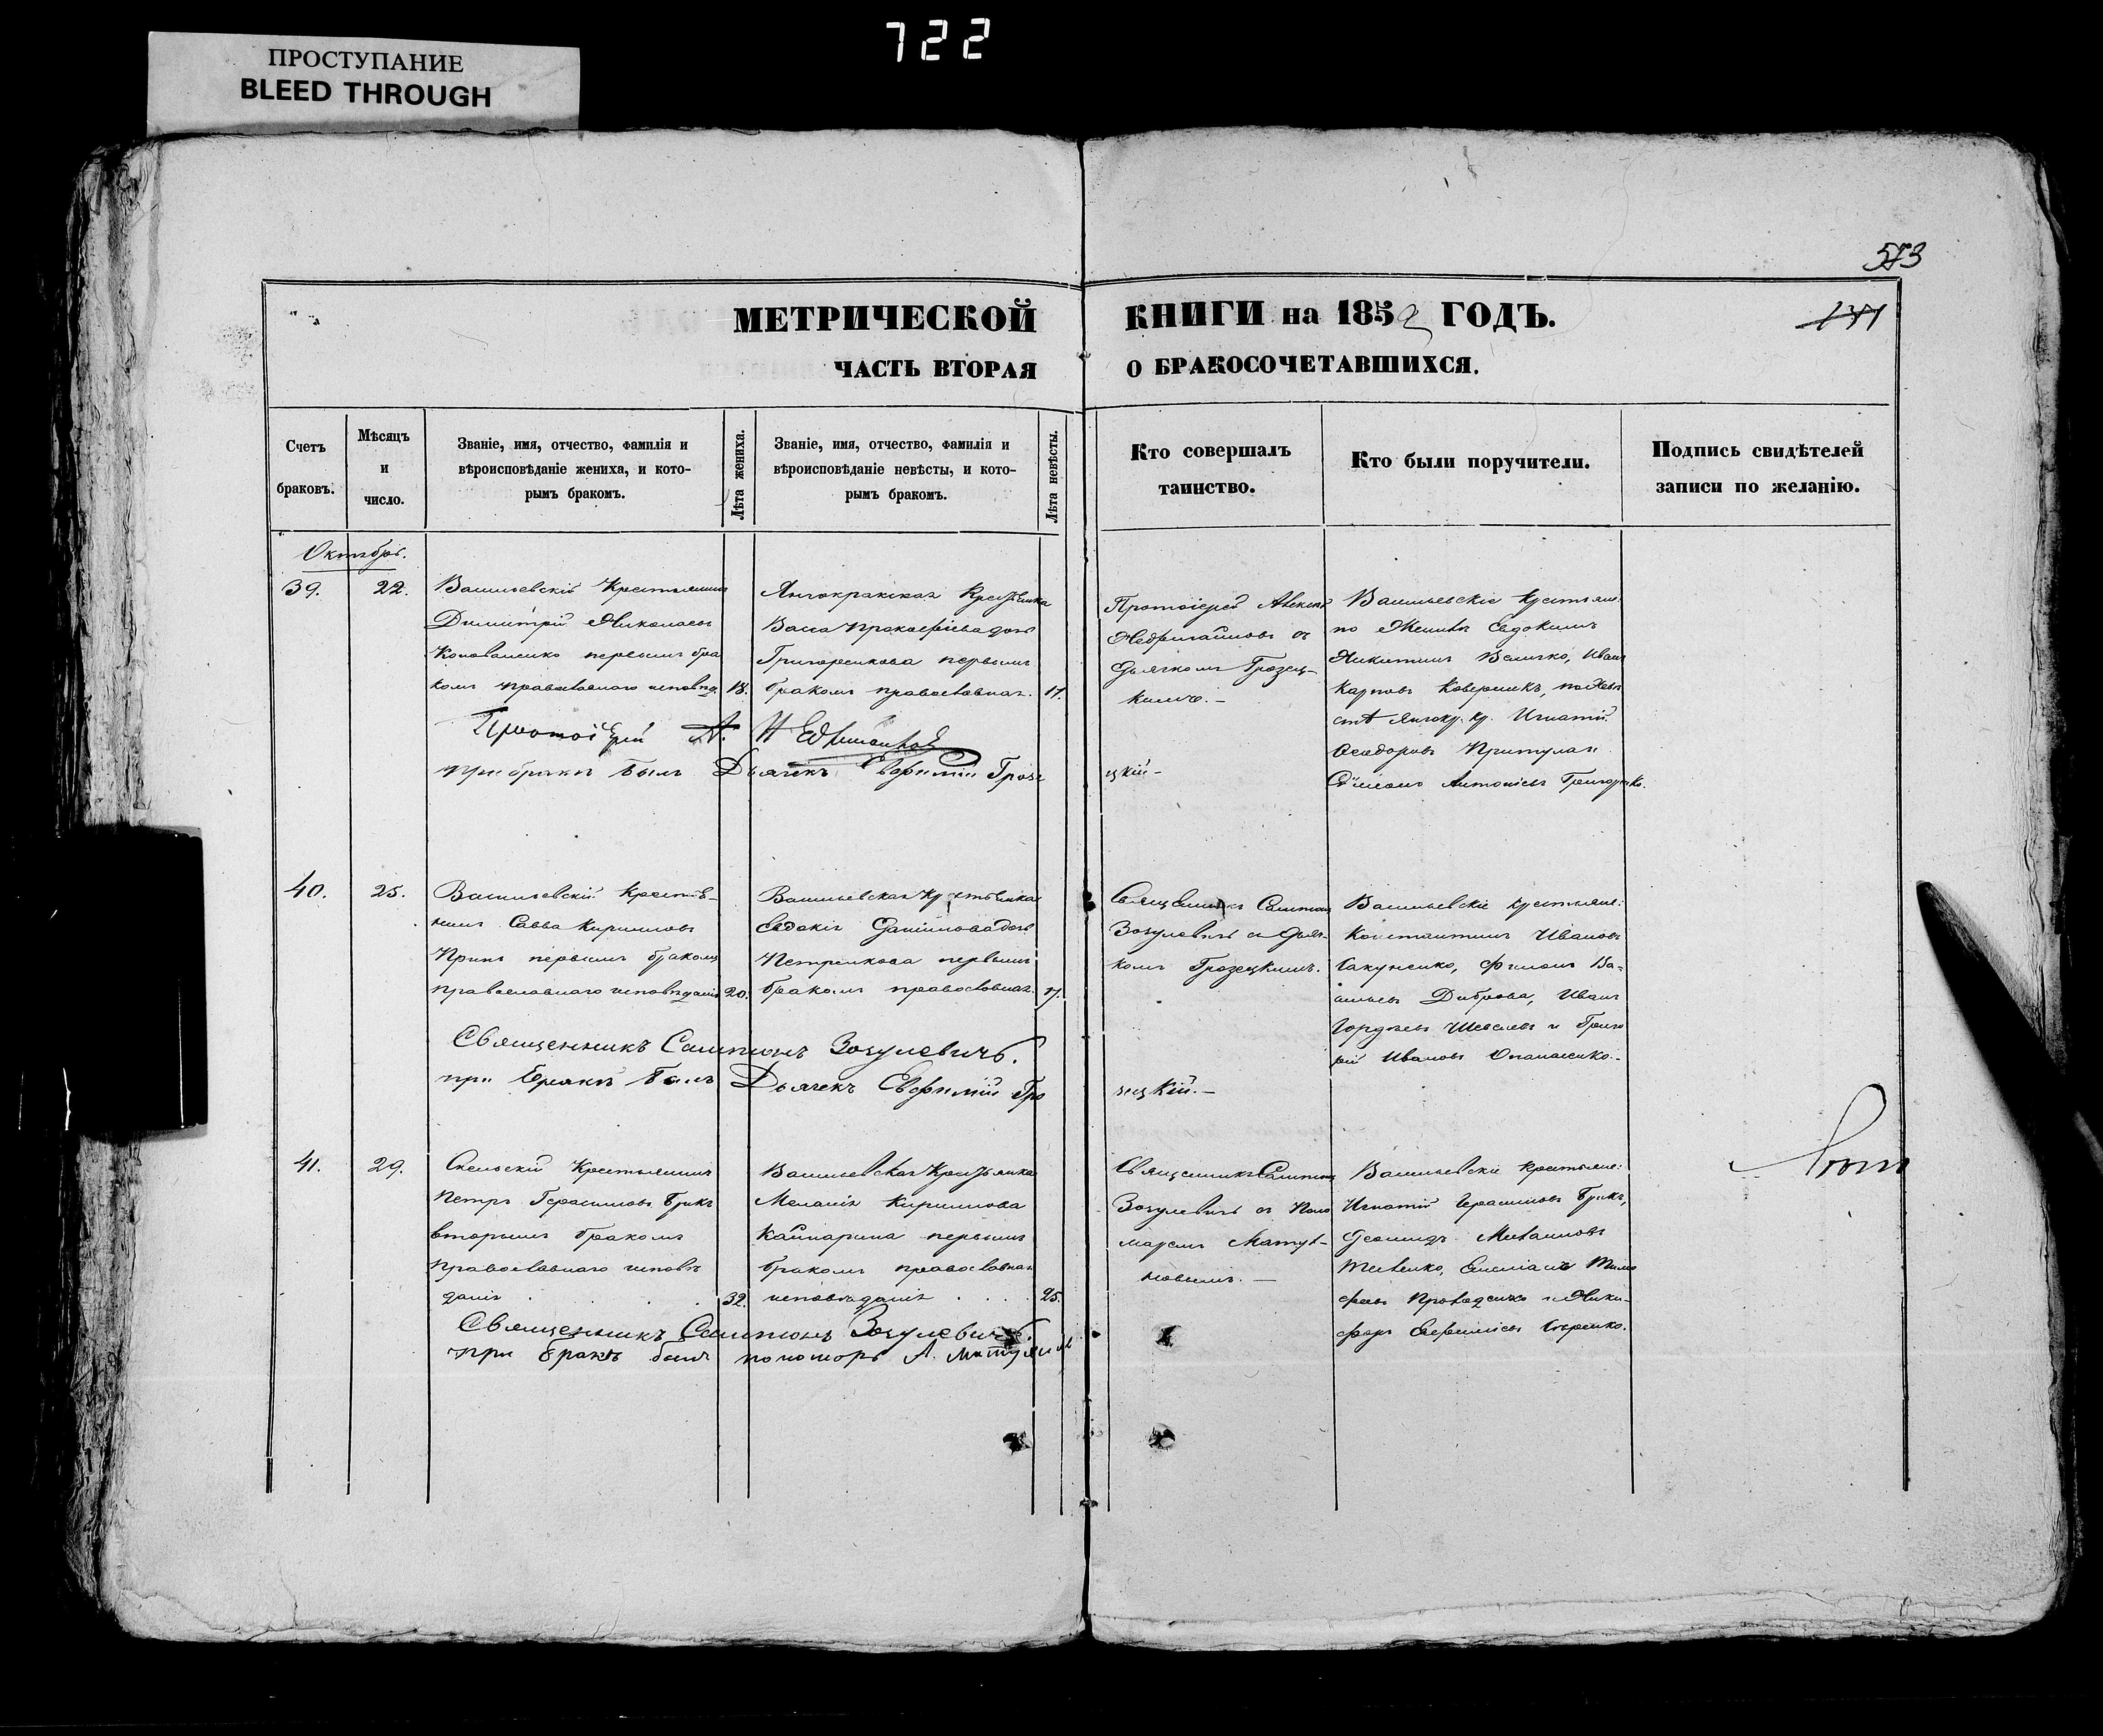 722
ПРОСТУПАНИЕ
BLEED THROUGH
573
МЕТРИЧЕСКОЙ КНИГИ на 1852 ГОДЪ.
ЧАСТЬ ВТОРАЯ О БРАКОСОЧЕТАВШИХСЯ.
Счетъ
браковъ.
Мѣсяцъ
и
число.
Званіе, имя, отчество, фамилія и
вѣроисповѣданіе жениха, и кото-
рымъ бракомъ.
Лѣта жениха.
Званіе, имя, отчество, фамилія и
вѣроисповѣданіе невѣсты, и кото-
рымъ бракомъ.
Лѣта невѣсты.
Кто совершалъ
таинство.
Кто были поручители.
Подпись свидѣтелей
записи по желанію.
Октябрь.
39.
22.
Васильевскій Крестьянинъ
Димитрій Николаевъ
Коноваленко первымъ бра
комъ православнаго исповѣд.
18.
Крестьянка
Васса Прокофіева дочь
Григоренкова первымъ
бракомъ православнаг.
17.
Протоіерей Алексій
Недригайловъ съ
Дьячкомъ Грозец-
кимъ.-
Васильевскіе Крестьян.
по Женихѣ Евдокимъ
Никитинъ Величко, Иванъ
Карповъ по Невѣ
стѣ Игнатій
Ѳеодоровъ Притула и
Антоніевъ Григоренко.
Протоіерей А. Недригайловъ
при бракѣ былъ Дьячекъ Евфимій Грозецкій-
40.
25.
Васильевскій Крестья-
нинъ Савва Кирилловъ
первымъ бракомъ
православнаго исповѣданія
20.
Васильевская Крестьянка
Евдокія Даніилова дочь
Петренкова первымъ
бракомъ православнаг.
17.
Священникъ Сампсонъ
Зозулевичъ съ Дьяч-
комъ Грозецкимъ.
Васильевскіе Крестьяне:
Константинъ Ивановъ
Филипъ Ва-
сильевъ Диброва, Иванъ
Гордѣевъ Шевелевъ и Григо
рій Ивановъ Опанасенко.-
Священникъ Сампсонъ Зозулевичъ.
при бракѣ былъ Дьячекъ Евфимій Грозецкій.-
41.
29.
Скельскій Крестьянинъ
Петръ Герасимовъ Брикъ
вторымъ бракомъ
православнаго исповѣ
данія
32.
Васильевская Крестьянка
Меланія Кириллова
первымъ
бракомъ православнаг
исповѣданія
25.
Священникъ Сампсонъ
Зозулевичъ съ Поно
маремъ
Васильевскіе Крестьяне:
Игнатій Герасимовъ Брикъ,
Леонидъ
Емеліанъ Тимо
феевъ и Ники-
форъ Евфиміевъ
Священникъ Сампсонъ Зозулевичъ.
при бракѣ былъ пономарь А.